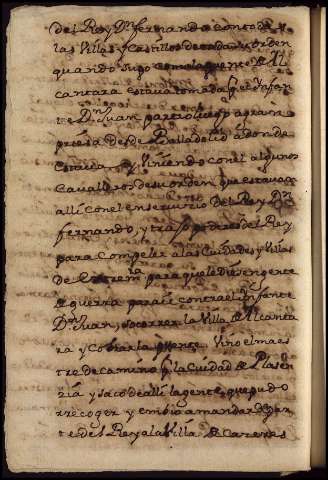 del Rey Dn fernando con todas
las Villas y Castillos de toda su orden
quando supo como la puente de Al
cantara estava tomada por el ynfan
te Dn Juan partio luego a gran
priesa desde Valladolid a donde
estava y Viniendo con el algunos
Cavalleros de su orden que estavan
alli con el en servicio del Rey Dn
fernando, y traxo poderes del Rey
para Compeler a las Ciudades y Villas
de Estrema para que le diesen gente
de guerra para ir contra el infante
Dn Juan, y socorrer la Villa de Alcanta
ra y Cobrar la puente. Vino el maes
tre de camino por la Ciudad de Plasen
zia y saco de alli la gente que pudo
rrecoger y embio a mandar de par
te del Rey a la Villa de Cazeres